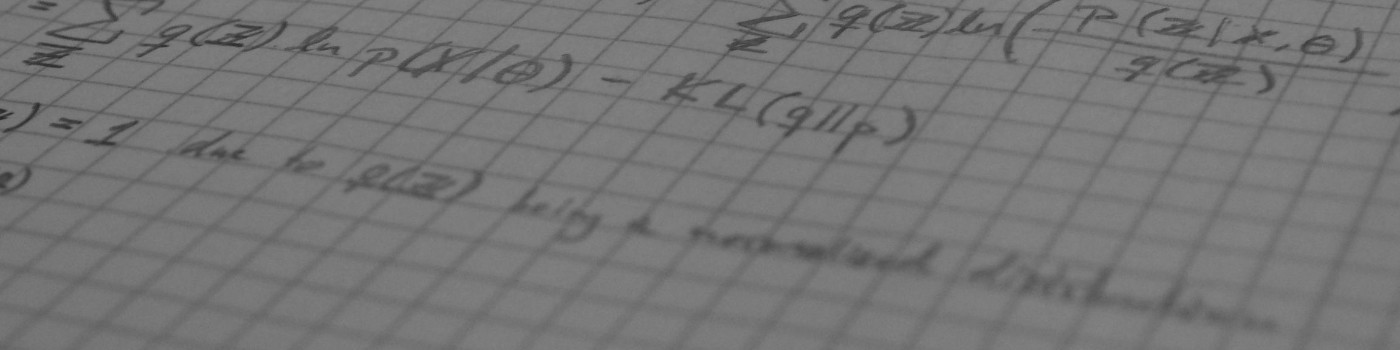 = ∑_Z q(Z) ln p(X|θ) - KL(q||p)
∑_Z q(Z) ln( P(Z|X,θ) / q(Z) )
) = 1 due to q(Z) being a normalized distribution